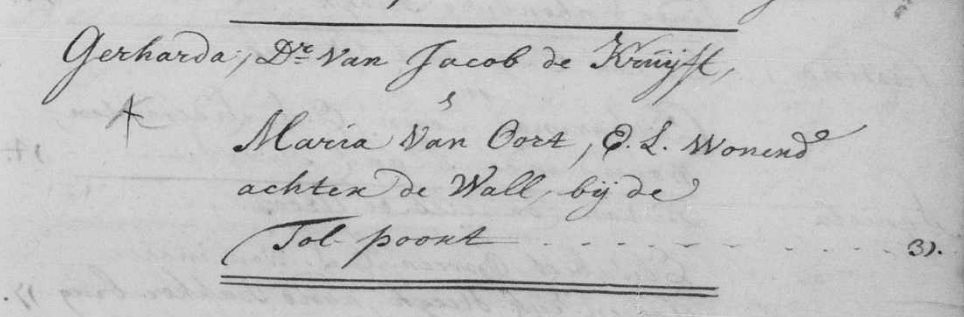 Gerharda, Dr. van Jacob de Kruijft,
&
Maria van Oort, E. L. wonend
achter de Wall, bij de
Tol poort - - - - - - 3).